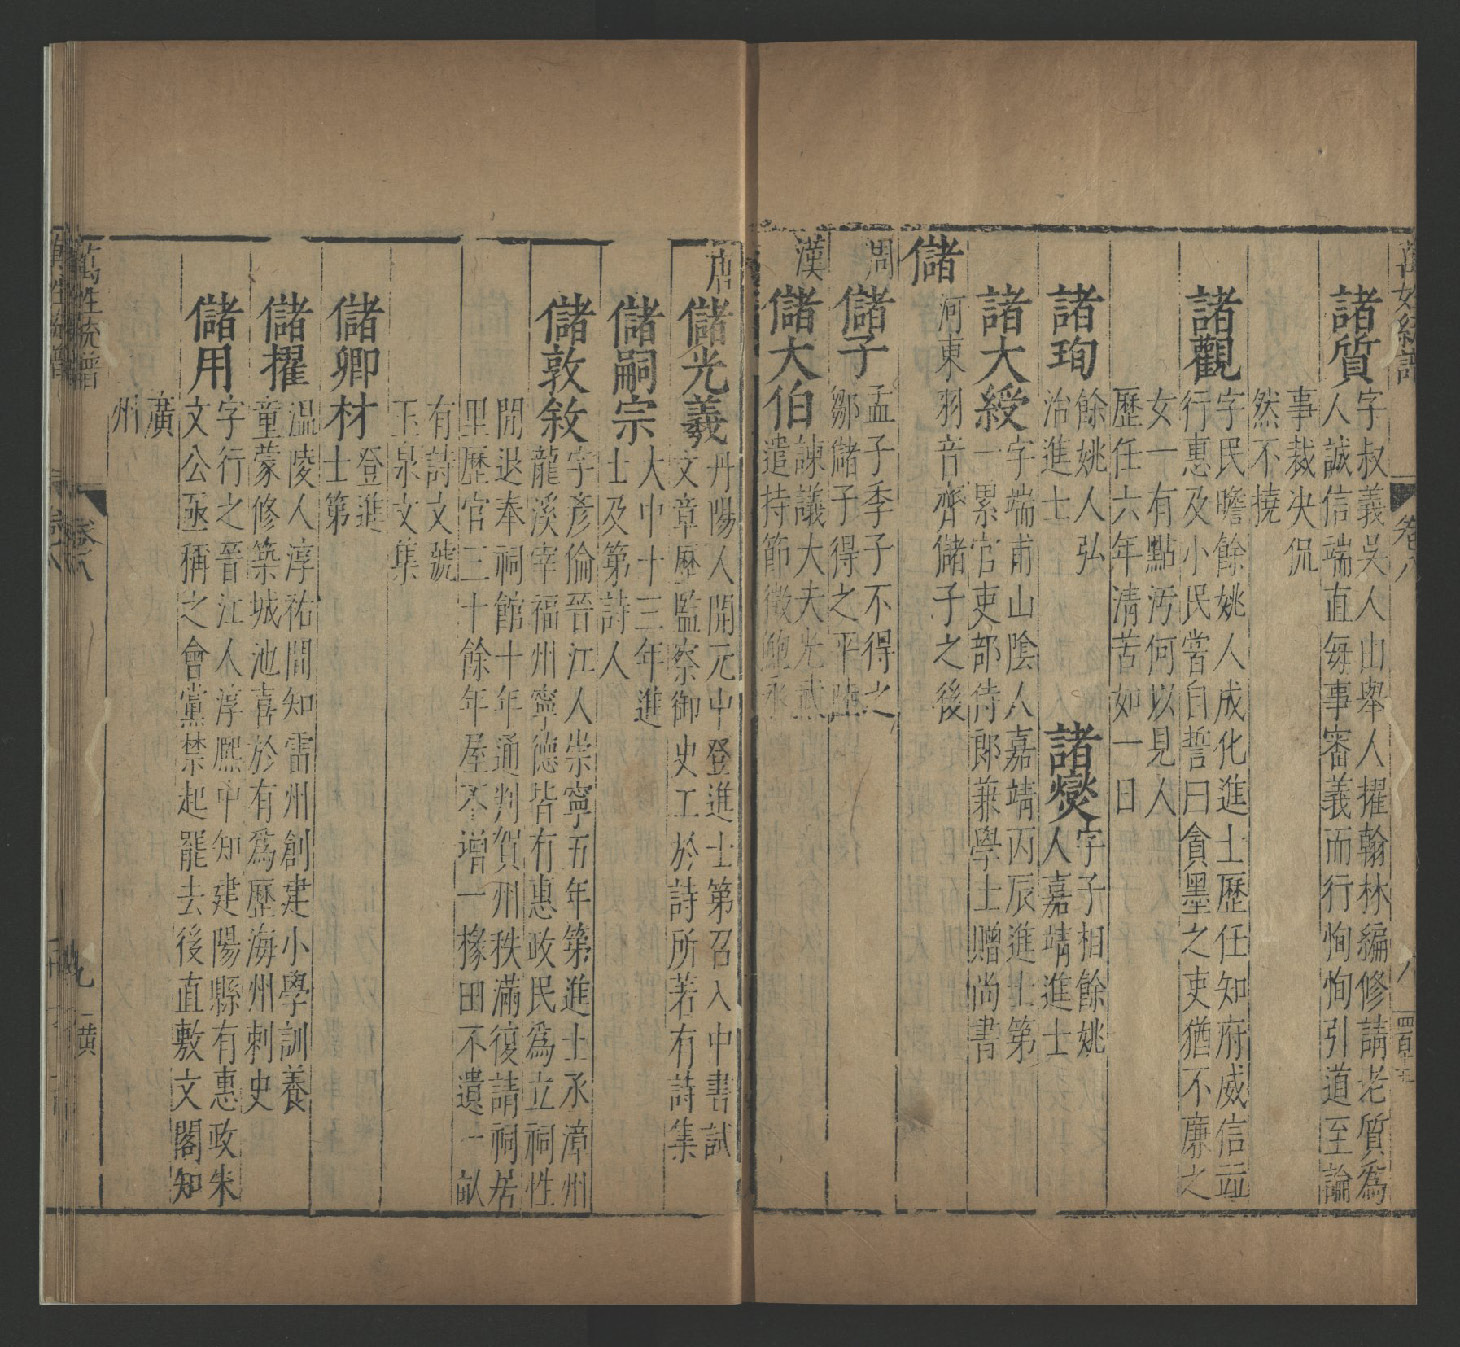 諸質字叔義吳人山舉人擢翰林編修請老質為
人誠信端直每事審義而行恂恂引道至論
事裁决侃
然不撓
諸觀字民瞻餘姚人成化進士歷任知府威信並
行惠及小民嘗自誓曰貪墨之吏猶不廉之
女一有點汚何以見人
歷任六年清苦如一日
諸珣餘姚人弘
治進士
諸燮字子相餘姚
人嘉靖進士
諸大綬字端甫山陰人嘉靖丙辰進士第
一累官吏部侍郎兼學士贈尚書
儲
河東羽音齊儲子之後
周
儲子孟子季子不得之
鄒儲子得之平陸
漢
儲大伯諫議大夫光武
遣持節徵鮑永
唐
儲光羲丹陽人開元中登進士第召入中書試
文章歷監察御史工於詩所若有詩集
儲嗣宗大中十三年進
士及第詩人
儲敦敘字彥倫晉江人崇寧五年第進士承漳州
龍溪宰福州寧德皆有惠政民為立祠性
閒退奉祠館十年通判賀州秩滿復請祠居
里歷官三十餘年屋不增一椽田不遺一畝
有詩文號
玉泉文集
儲卿材登進
士第
儲擢溫陵人淳祐間知雷州創建小學訓養
童蒙修築城池喜於有為歷海州刺史
儲用字行之晉江人淳熙中知建陽縣有惠政朱
文公亟稱之會黨禁起罷去後直敷文閣知
廣
州
萬姓統譜
卷八
九